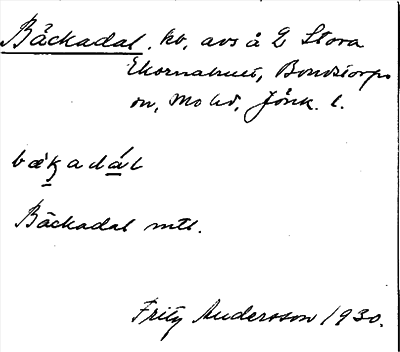 Bäckadal, kv, avs å 2 Stora
Ekornahult, Bondstorps
sn, Mo hd, Jönk. l.
bækadál
Bäckadal mtl.
Fritz Andersson 1930.